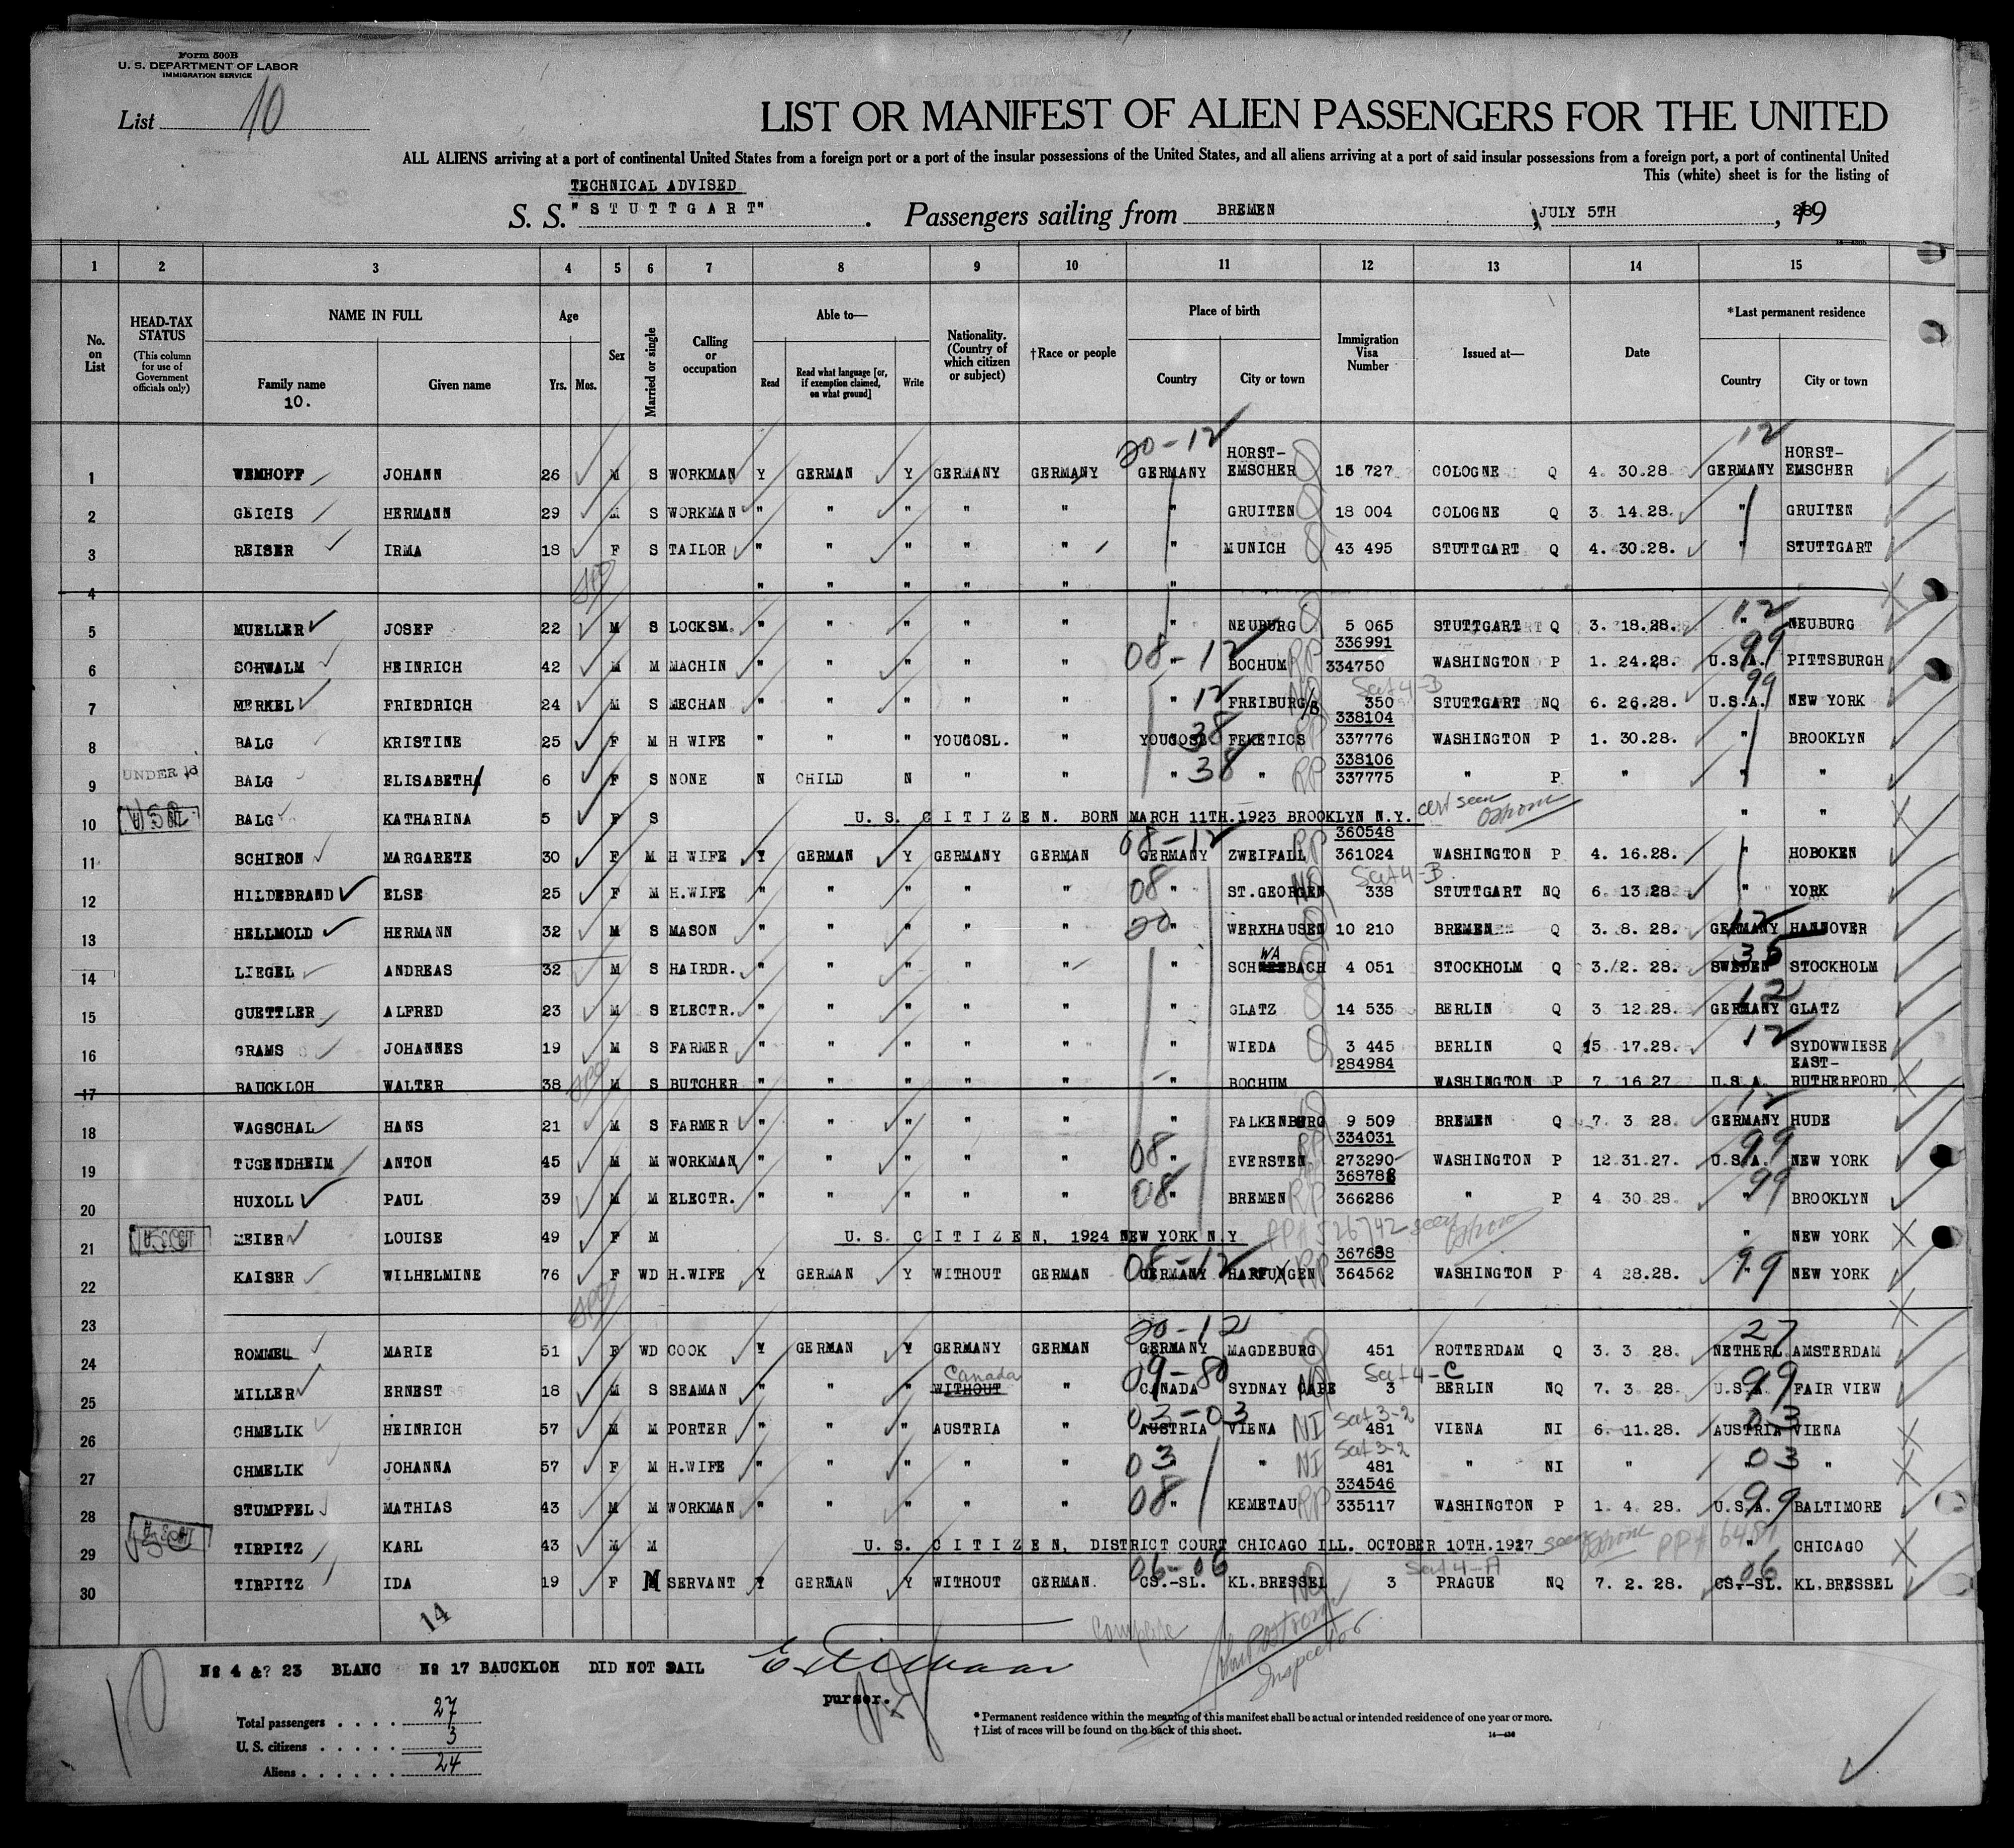 Form 500B
U. S. DEPARTMENT OF LABOR
IMMIGRATION SERVICE
List 10
LIST OR MANIFEST OF ALIEN PASSENGERS FOR THE UNITED
ALL ALIENS arriving at a port of continental United States from a foreign port or a port of the insular possessions of the United States, and all aliens arriving at a port of said insular possessions from a foreign port, a port of continental United
This (white) sheet is for the listing of
TECHNICAL ADVISED
S. S. "STUTTGART". Passengers sailing from BREMEN, JULY 5TH, 19 28
1 2 3 4 5 6 7 8 9 10 11 12 13 14 15
No. on List
HEAD-TAX STATUS (This column for use of Government officials only)
NAME IN FULL
Family name 10.
Given name
Age
Yrs. Mos.
Sex
Married or single
Calling or occupation
Able to—
Read
Read what language [or, if exemption claimed, on what ground]
Write
Nationality. (Country of which citizen or subject)
†Race or people
Place of birth
Country
City or town
Immigration Visa Number
Issued at—
Date
*Last permanent residence
Country
City or town
20-12 12
1 WEMHOFF JOHANN 26 M S WORKMAN Y GERMAN Y GERMANY GERMANY GERMANY HORST-EMSCHER Q 15 727 COLOGNE Q 4. 30.28 GERMANY HORST-EMSCHER
2 GEICIS HERMANN 29 M S WORKMAN " " " " " " GRUITEN Q 18 004 COLOGNE Q 3 14.28. " GRUITEN
3 REISER IRMA 18 F S TAILOR " " " " " " MUNICH Q 43 495 STUTTGART Q 4. 30.28. " STUTTGART
4 " " " " " "
5 MUELLER JOSEF 22 M S LOCKSM. " " " " " " NEUBURG Q 5 065 STUTTGART Q 3. 18.28. 12 " NEUBURG
6 SCHWALM HEINRICH 42 M M MACHIN " " " " " 08-12 " BOCHUM RP 336991 334750 WASHINGTON P 1. 24.28. 99 U.S.A. PITTSBURGH
7 MERKEL FRIEDRICH 24 M S MECHAN " " " " " " 12 FREIBURG/B NQ Sct 4-B 350 STUTTGART NQ 6. 26.28. 99 U.S.A. NEW YORK
8 BALG KRISTINE 25 F M H WIFE " " " YOUGOSL. " YOUGOSL 38 FEKETICS RP 338104 337776 WASHINGTON P 1. 30.28. " BROOKLYN
9 UNDER 16 BALG ELISABETH 6 F S NONE N CHILD N " " " 38 " RP 338106 337775 " P " " "
10 BALG KATHARINA 5 F S U. S. CITIZEN. BORN MARCH 11TH.1923 BROOKLYN N.Y. cert seen " "
11 SCHIRON MARGARETE 30 F M H WIFE Y GERMAN Y GERMANY GERMAN 08-12 GERMANY ZWEIFALL RP 360548 361024 WASHINGTON P 4. 16.28. " HOBOKEN
12 HILDEBRAND ELSE 25 F M H.WIFE " " " " " 08 " ST.GEORGEN NQ Sct 4-B. 338 STUTTGART NQ 6. 13.28 " YORK
13 HELLMOLD HERMANN 32 M S MASON " " " " " 20 " WERXHAUSEN Q 10 210 BREMEN Q 3. 8. 28. 12 GERMANY HANNOVER
14 LIEGEL ANDREAS 32 M S HAIRDR. " " " " " " SCHWABACH Q 4 051 STOCKHOLM Q 3./2. 28. 35 SWEDEN STOCKHOLM
15 GUETTLER ALFRED 23 M S ELECTR. " " " " " " GLATZ Q 14 535 BERLIN Q 3 12.28. 12 GERMANY GLATZ
16 GRAMS JOHANNES 19 M S FARMER " " " " " " WIEDA Q 3 445 BERLIN Q 5 17.28. 12 SYDOWWIESE
17 BAUCKLOH WALTER 38 M S BUTCHER " " " " " " BOCHUM 284984 WASHINGTON P 7 16 27 U.S.A. EAST-RUTHERFORD
18 WAGSCHAL HANS 21 M S FARMER " " " " " " FALKENBURG Q 9 509 BREMEN Q 7. 3 28. 12 GERMANY HUDE
19 TUGENDHEIM ANTON 45 M M WORKMAN " " " " " 08 " EVERSTEN RP 334031 273290 WASHINGTON P 12.31.27. 99 U.S.A. NEW YORK
20 HUXOLL PAUL 39 M M ELECTR. " " " " " 08 " BREMEN RP 368788 366286 " P 4 30 28. 99 " BROOKLYN
21 MEIER LOUISE 49 F M U. S. CITIZEN, 1924 NEW YORK N.Y PP# 526742 seen " NEW YORK
22 KAISER WILHELMINE 76 F WD H.WIFE Y GERMAN Y WITHOUT GERMAN 08-12 GERMANY HARFUNGEN RP 367638 364562 WASHINGTON P 4 28.28. 99 " NEW YORK
23
24 ROMMEL MARIE 51 F WD COOK Y GERMAN Y GERMANY GERMAN 20-12 GERMANY MAGDEBURG Q 451 ROTTERDAM Q 3. 3 28. 27 NETHERL AMSTERDAM
25 MILLER ERNEST 18 M S SEAMAN " " " WITHOUT Canada " 09-80 CANADA SYDNAY CAPE NQ Sct 4-C 3 BERLIN NQ 7. 3 28. 99 U.S.A. FAIR VIEW
26 CHMELIK HEINRICH 57 M M PORTER " " " AUSTRIA " 03-03 AUSTRIA VIENA NI Sct 3-2 481 VIENA NI 6. 11.28. 03 AUSTRIA VIENA
27 CHMELIK JOHANNA 57 F M H.WIFE " " " " " 03 " NI Sct 3-2 481 " NI " 03 " "
28 STUMPFEL MATHIAS 43 M M WORKMAN " " " " " 08 " KEMETAU RP 334546 335117 WASHINGTON P 1. 4. 28. 99 U.S.A. BALTIMORE
29 TIRPITZ KARL 43 M M U. S. CITIZEN, DISTRICT COURT CHICAGO ILL. OCTOBER 10TH.1927 seen PP# " CHICAGO
30 TIRPITZ IDA 19 F M SERVANT Y GERMAN Y WITHOUT GERMAN. 06-06 CS.-SL. KL.BRESSEL NQ Sct 4-A 3 PRAGUE NQ 7. 2. 28. 06 CS.-SL. KL.BRESSEL
14
Complete
Inspector
10
No 4 &? 23 BLANC No 17 BAUCKLOH DID NOT SAIL
purser.
Total passengers . . . . 27
U. S. citizens . . . . . 3
Aliens . . . . . . 24
* Permanent residence within the meaning of this manifest shall be actual or intended residence of one year or more.
† List of races will be found on the back of this sheet.
14—436